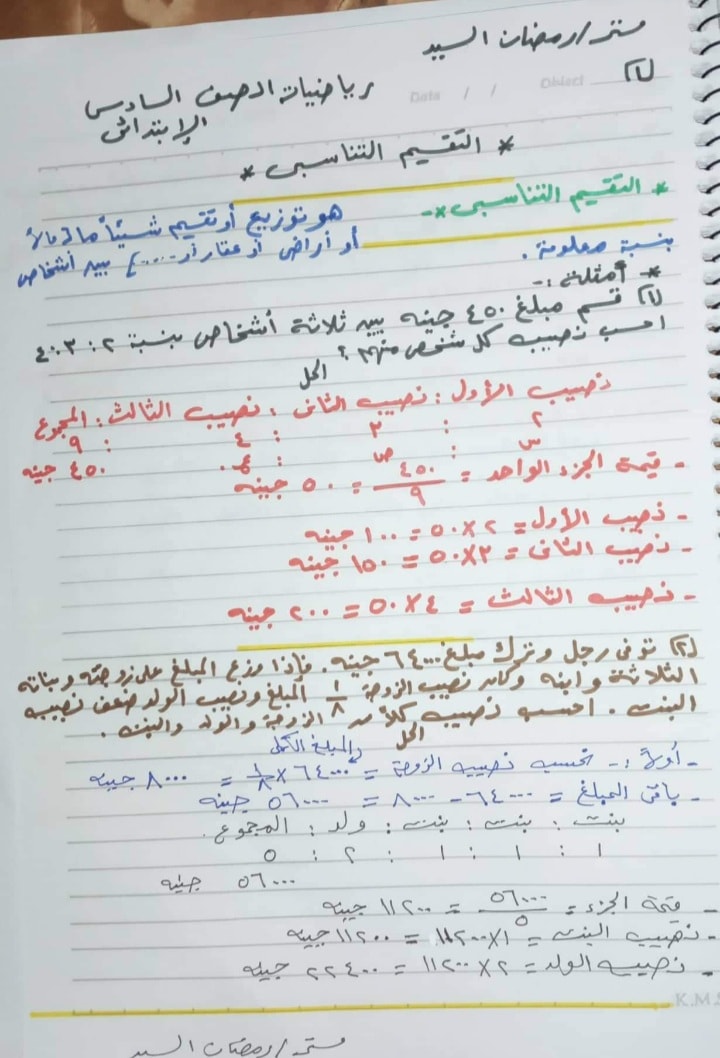 مستر/رمضان السيد
(١)
Data / / Object
رياضيات الصف السادس
الإبتدائى
* التقسيم التناسبى *
* التقسيم التناسبى *- هو توزيع أو تقسيم شيئاً ما (مالاً
أو أراضى أو عقار أو ....) بين أشخاص
بنسبة معلومة.
* أمثلة :-
(١) قسم مبلغ ٤٥٠ جنيه بين ثلاثة أشخاص بنسبة ٢ : ٣ : ٤
احسب نصيب كل شخص منهم ؟
الحل
نصيب الأول : نصيب الثانى : نصيب الثالث : المجموع
٢ : ٣ : ٤ : ٩
س : ص : ع : ٤٥٠ جنيه
- قيمة الجزء الواحد = ٤٥٠/٩ = ٥٠ جنيه
- نصيب الأول = ٢ × ٥٠ = ١٠٠ جنيه
- نصيب الثانى = ٣ × ٥٠ = ١٥٠ جنيه
- نصيب الثالث = ٤ × ٥٠ = ٢٠٠ جنيه
(٢) توفى رجل وترك مبلغ ٦٤٠٠٠ جنيه. فإذا وزع المبلغ على زوجته وبناته
الثلاثة وابنه وكان نصيب الزوجة ١/٨ المبلغ ونصيب الولد ضعف نصيب
البنت. احسب نصيب كلاً من الزوجة والولد والبنت.
الحل
- أولاً :- نحسب نصيب الزوجة = ١/٨ × ٦٤٠٠٠ = ٨٠٠٠ جنيه
المبلغ الكلى
- باقى المبلغ = ٦٤٠٠٠ - ٨٠٠٠ = ٥٦٠٠٠ جنيه
بنت : بنت : بنت : ولد : المجموع
١ : ١ : ١ : ٢ : ٥
٥٦٠٠٠ جنيه
- قيمة الجزء = ٥٦٠٠٠/٥ = ١١٢٠٠ جنيه
- نصيب البنت = ١ × ١١٢٠٠ = ١١٢٠٠ جنيه
- نصيب الولد = ٢ × ١١٢٠٠ = ٢٢٤٠٠ جنيه
K.M.
مستر/رمضان السيد